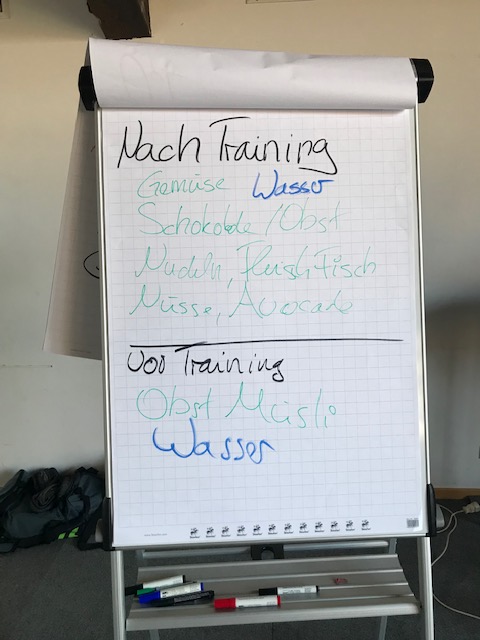 Nach Training
Gemüse Wasser
Schokolade / Obst
Nudeln, Fleisch Fisch
Nüsse, Avocado
Vor Training
Obst Müsli
Wasser